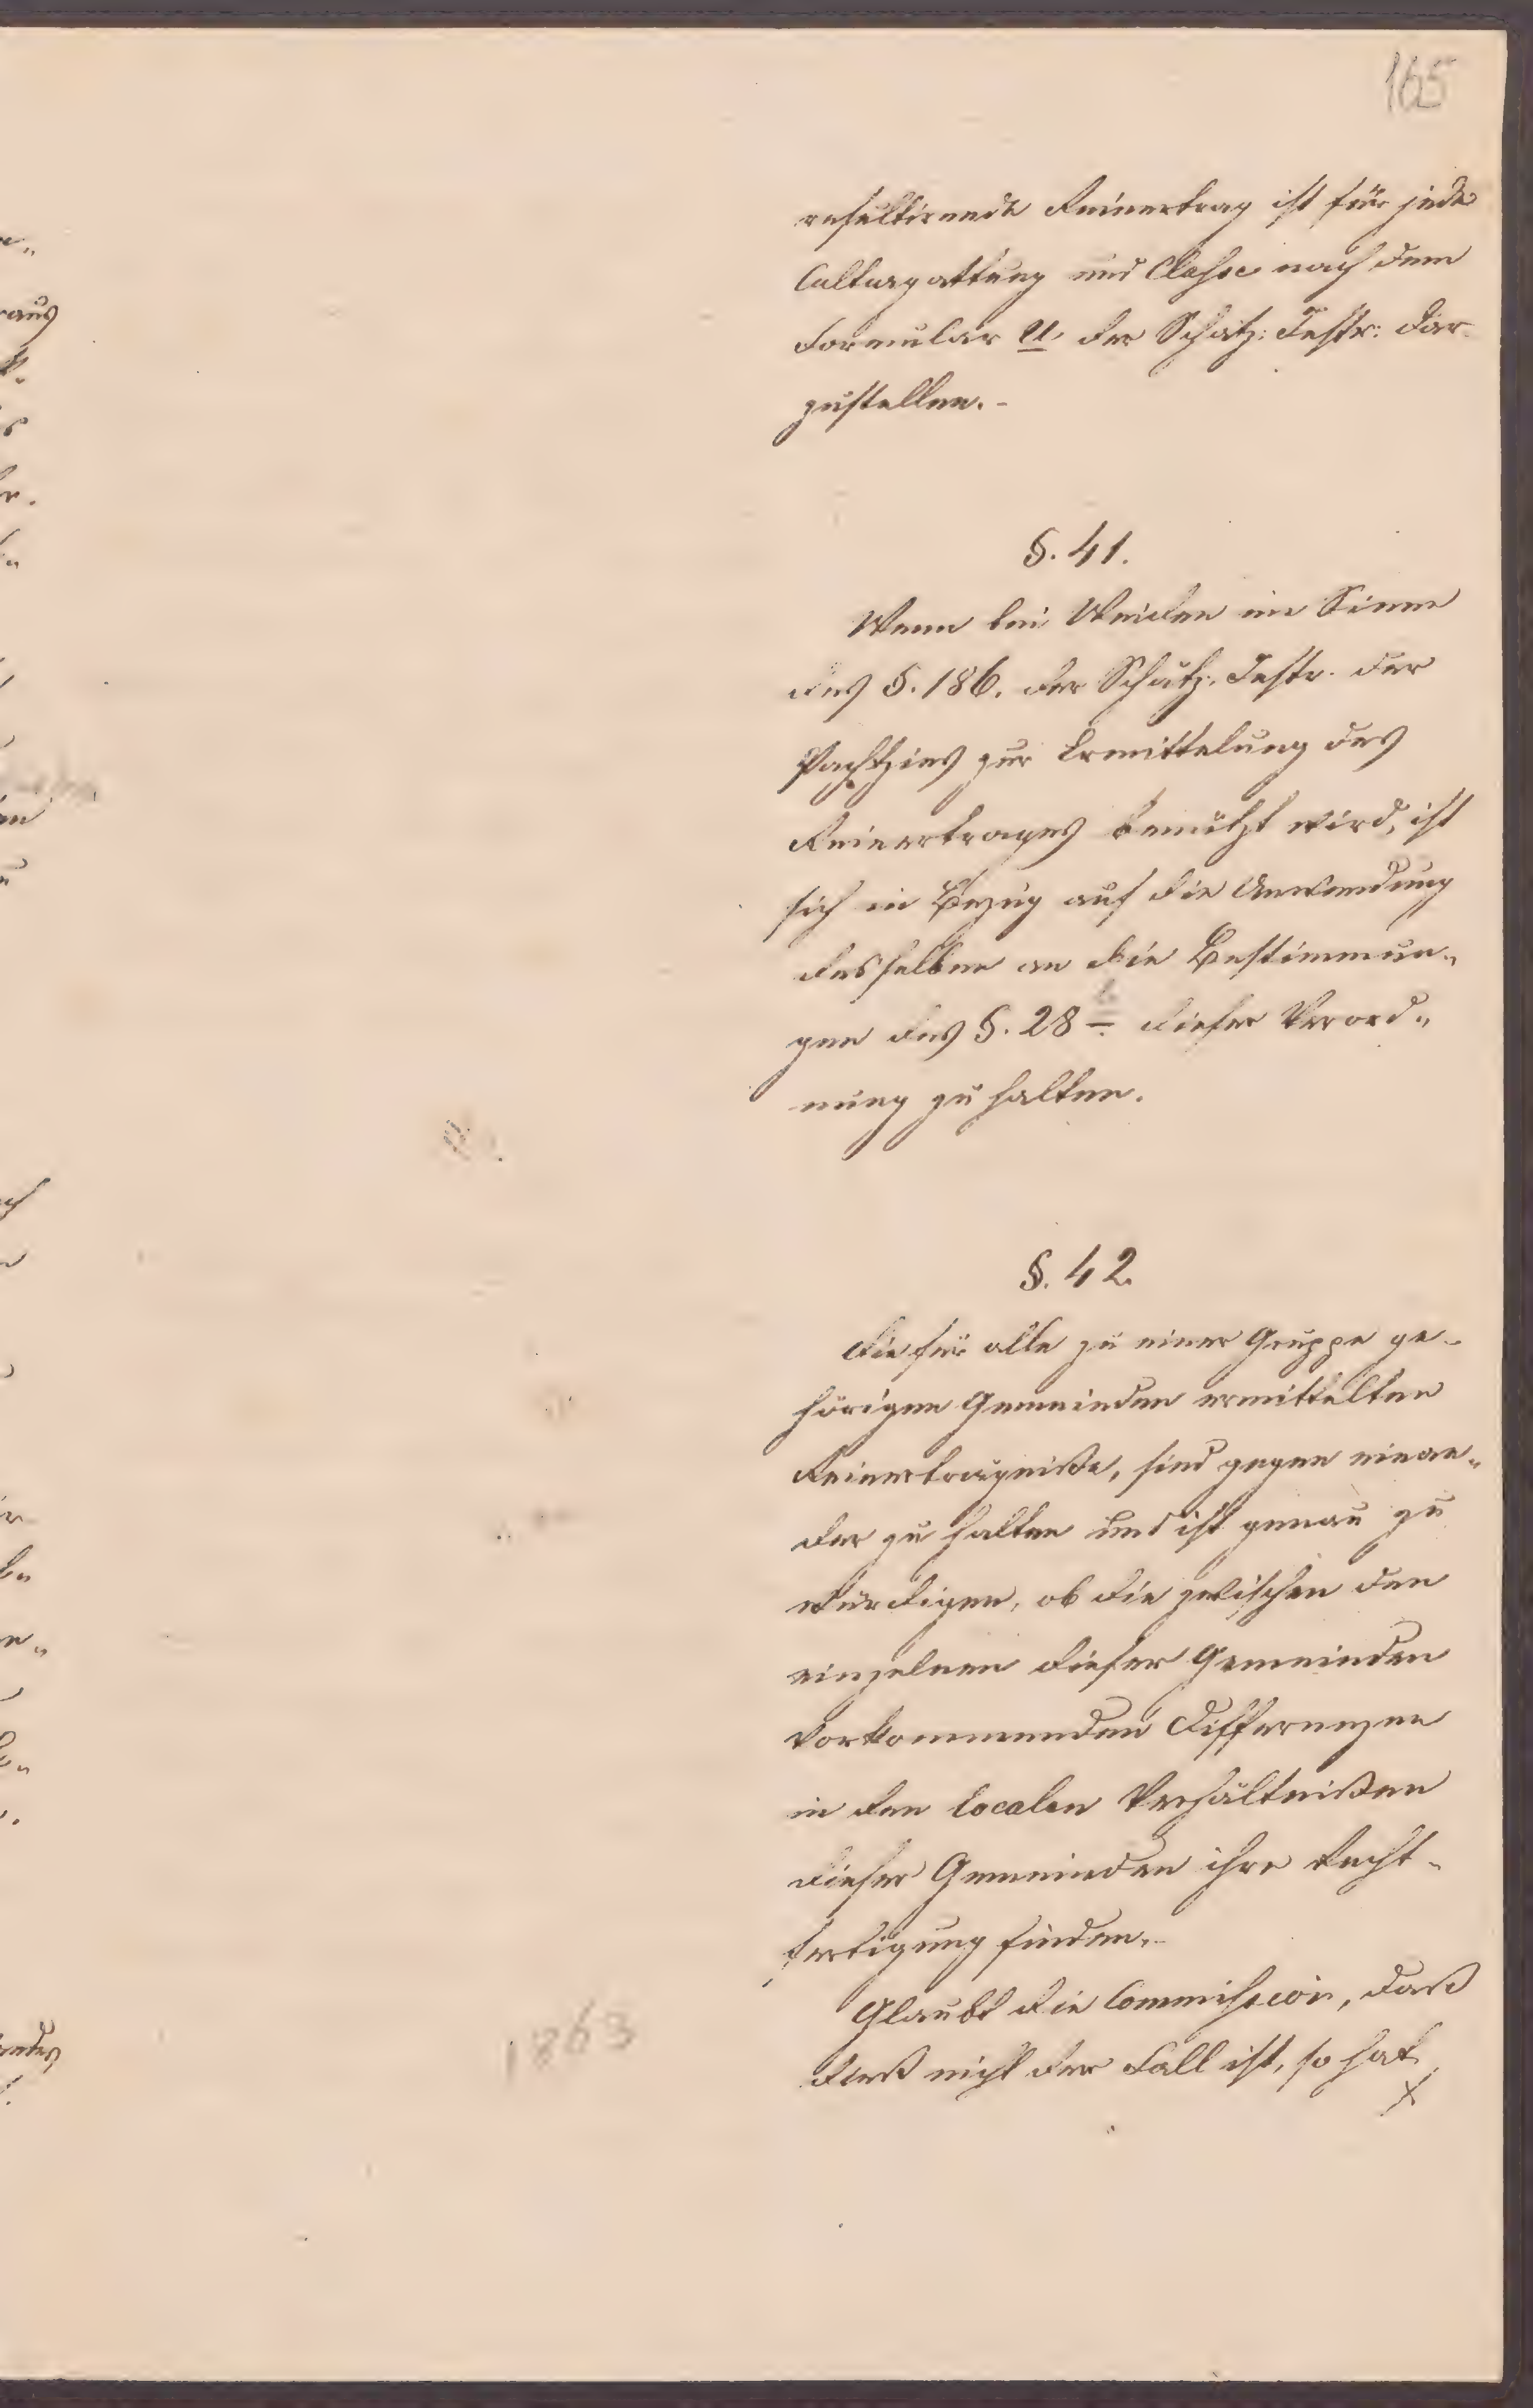 165
resultirende Reinertrag ist für jede
Culturgattung und Classe nach dem
Formular U. der Schätz: Instr: dar-
zustellen.-
§. 41.
Wenn bei Weiden im Sinne
des §. 186. der Schätz: Instr. der
Pachtzins zur Ermittelung des
Reinertrages benützt wird, ist
sich in Bezug auf die Anwendung
desselben an die Bestimmun„
gen des §. 28 dieser Verord„
nung zu halten.
§. 42.
Die für alle zu einer Gruppe ge-
hörigen Gemeinden ermittelten
Reinerträgniße, sind gegen einan„
der zu halten und ist genau zu
würdigen, ob die zwischen den
einzelnen dieser Gemeinden
vorkommenden Differenzen
in den localen Verhältnißen
dieser Gemeinden ihre Recht-
fertigung finden.-
Glaubt die Commission, daß
dieß nicht der Fall ist, so hat
1863